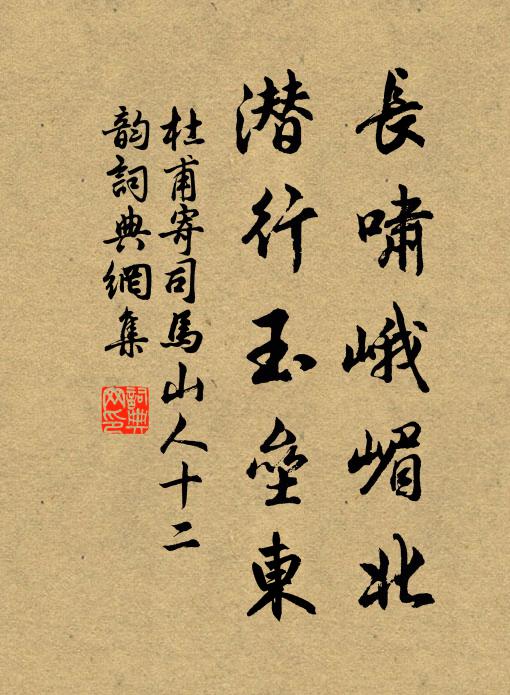 長嘯峨嵋北
潜行玉壘東
杜甫寄司馬山人十二
韵詞典網集
詞典網印